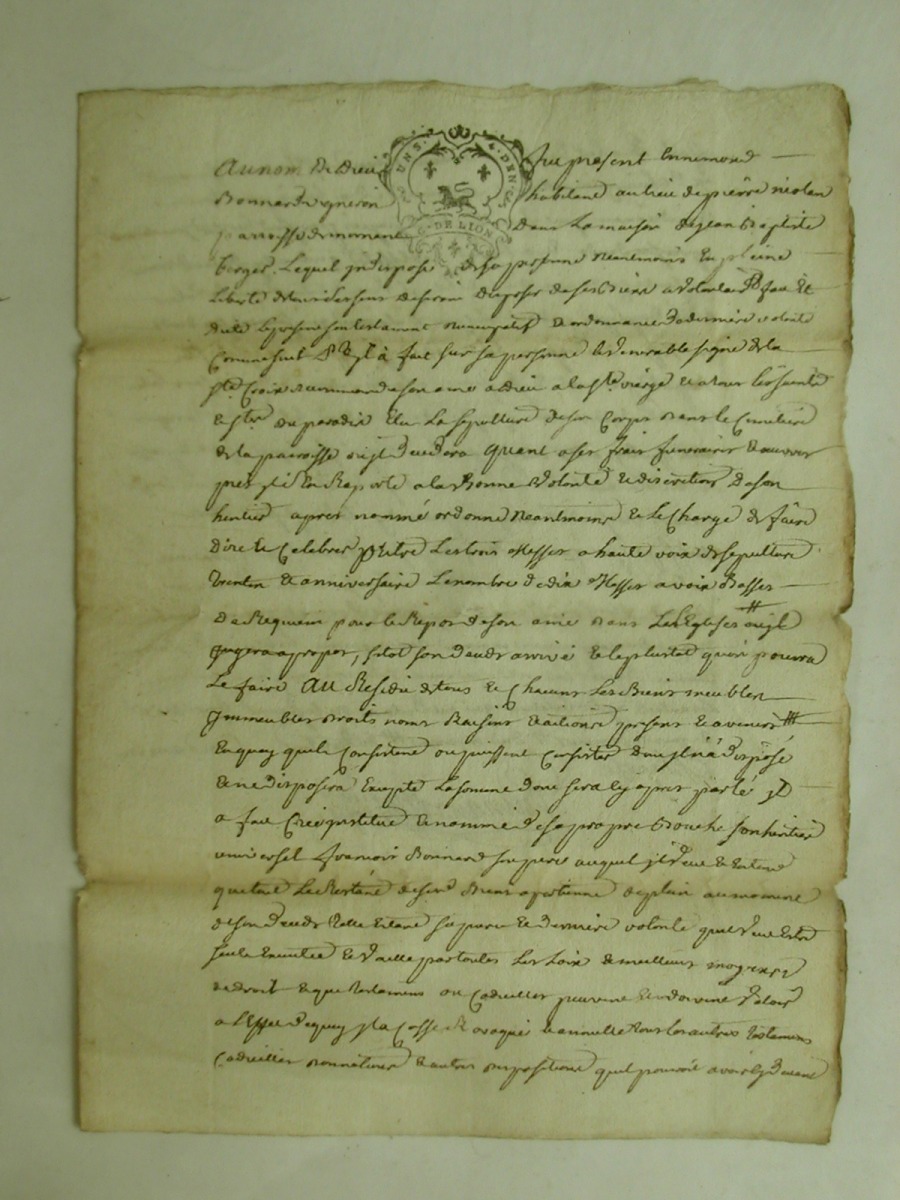 UN S. 4. DEN
G. DE LION
Au nom de Dieu fut present Ennemond
Bonnard vigneron habitant au lieu de pierre
parroisse de mornant dans la maison de jean Baptiste
Lequel indisposé de sa personne neanmoins en pleine
Liberté de ses sens desirant disposer de ses Biens a volonté fait et
dicté le present son testament nuncupatif et ordonnance de derniere volonté
Comme suit a fait sur sa personne le venerable signe de la
ste Croix recommandé son ame a dieu a la ste vierge et a tous les saints
et stes du paradix Elu La sepulture de son Corps dans le Cimetiere
de la parroisse ou il decedera quant a ses frais funeraires et œuvres
pies s'en Raporte a la Bonne volonté et discretion de son
heritier apres nommé ordonne Neantmoins et le Charge de faire
dire et Celebrer outre Les trois Messes a haute voix de sepulture
et anniversaire Le nombre de dix Messes a voix Basses
de Requiem pour le Repos de son ame dans Les Eglises ou il
jugera apropos, sitot son deceds arrivé et le plustot que pourra
Le faire Au Residu de tous et Chacuns Les Biens meubles
jmmeubles droits noms Raisons et actions presents et avenirs
En quoy quils Consistent ou puissent Consister dont il n'a disposé
et ne disposera Excepté La somme dont sera cy apres parlé jl
a fait Creé jnstitué et nommé de sa propre Bouche son heritier
universel francois Bonnard son pere auquel il veut et Entend
que tout Le Restant de ses Biens apartienne de plein au moment
de son deceds telle Estant sa pure et derniere volonté quil veut Estre
seule Executée et vaille par toutes Les Loix et meilleurs moyens
de droit et que testaments ou Codicilles peuvent et doivent valoir
a L'Effet de quoy jl a Cassé Revoqué et annullé tous les autres testaments
Codicilles donnations et autres dispositions quil pouvoit avoir cy devant